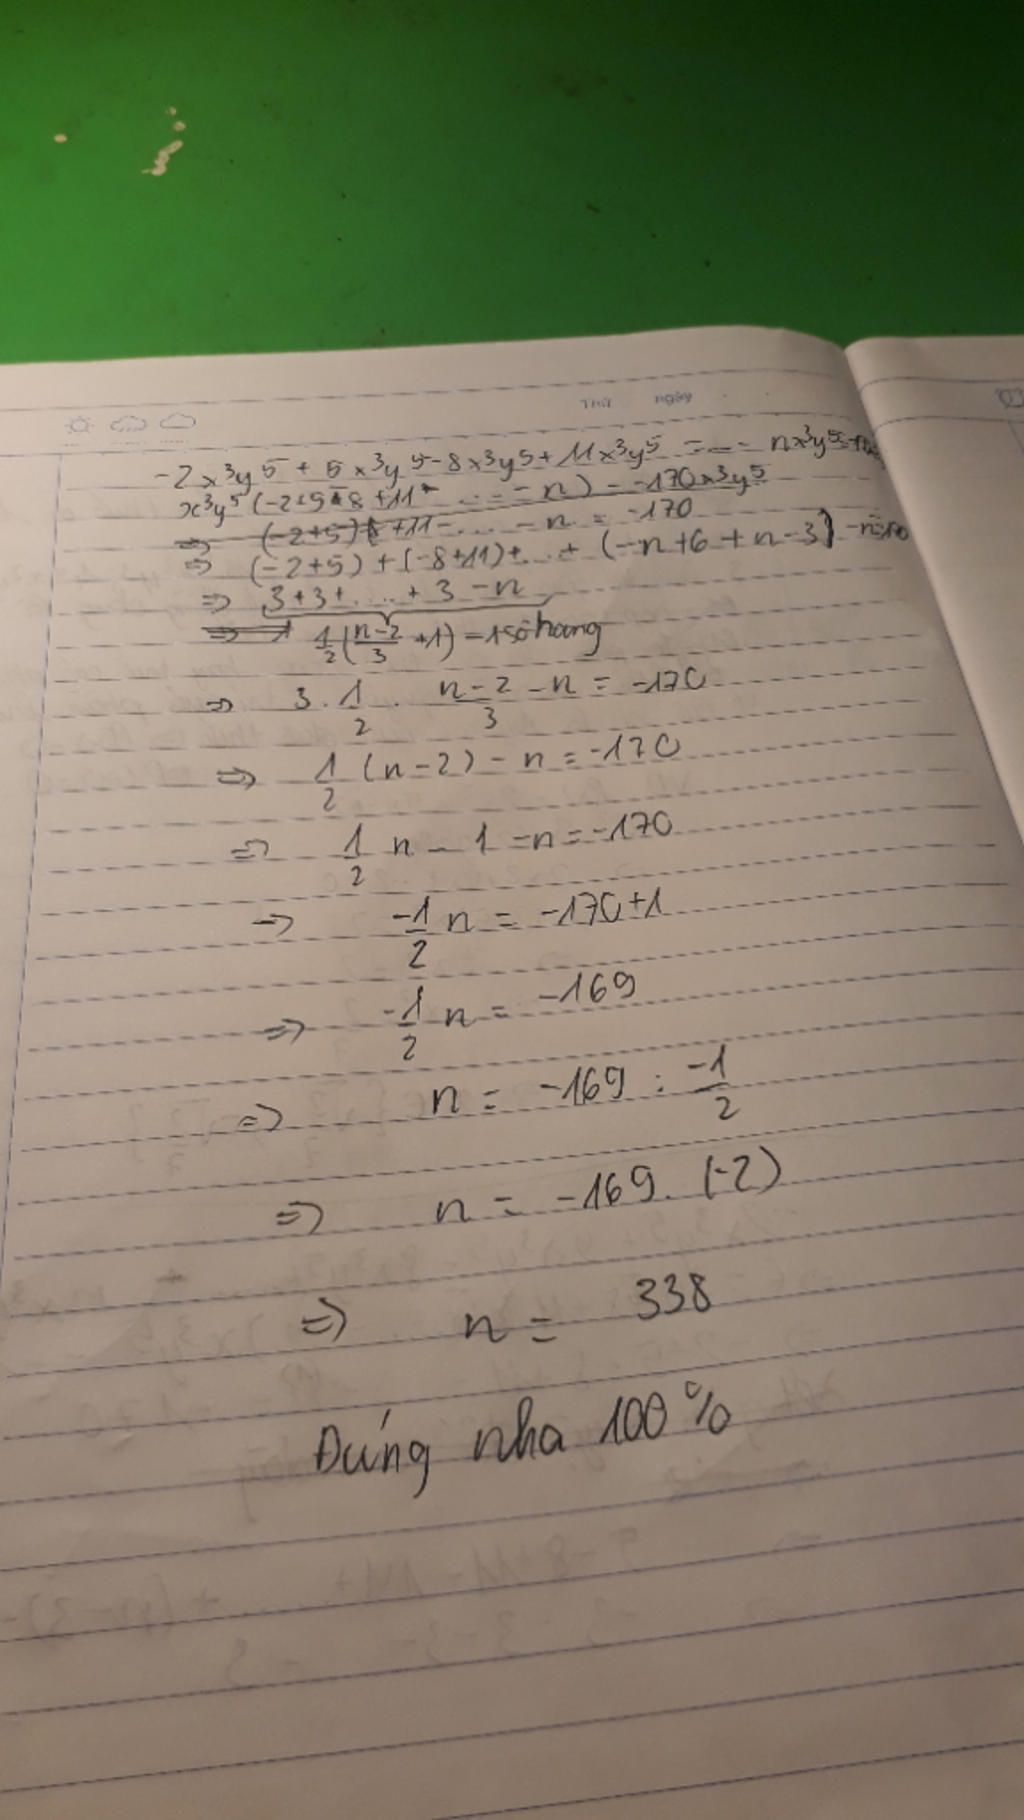 Thứ ngày
-2x³y⁵ + 5x³y⁵ - 8x³y⁵ + 11x³y⁵ - ... - nx³y⁵
x³y⁵(-2+5-8+11- ... - n) = -170x³y⁵
⇒ (-2+5) +11- ... - n = -170
⇒ (-2+5) + (-8+11) + ... + (-n+6+n-3) - n
⇒ 3+3+ ... + 3 - n
⇒ 1/2 ((n-2)/3 + 1) - 1 số hạng
⇒ 3 . 1/2 . (n-2)/3 - n = -170
⇒ 1/2 (n-2) - n = -170
⇒ 1/2 n - 1 - n = -170
⇒ -1/2 n = -170+1
⇒ -1/2 n = -169
⇒ n = -169 : -1/2
⇒ n = -169 . (-2)
⇒ n = 338
Đúng nha 100%